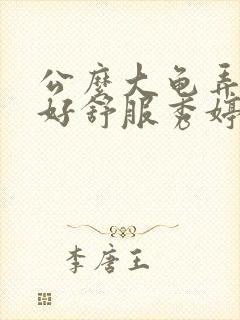 公麽大龟弄
好舒服秀婷
李唐王